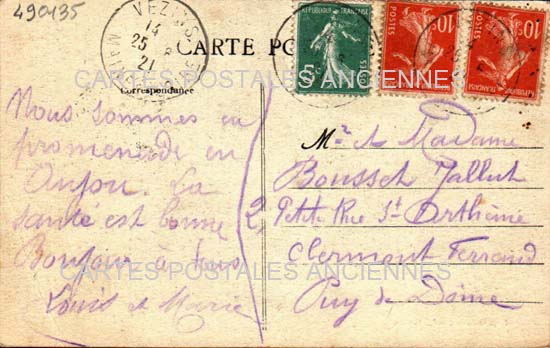 490435
VEZINS
14
25 - 8
21
CARTE PO
Correspondance
RÉPUBLIQUE FRANÇAISE
5
POSTES
10c
RÉPUBLIQUE FRANÇAISE
POSTES
10c
RÉPUBLIQUE FRANÇAISE
CARTES POSTALES ANCIENNES
Nous sommes en
promenade en
Anjou. La
santé est bonne
Bonjour à tous
Louis et Marie
Mr et Madame
Bousset Jallut
2 Petite Rue St Orthème
Clermont Ferrand
Puy de Dôme
CARTES POSTALES ANCIENNES